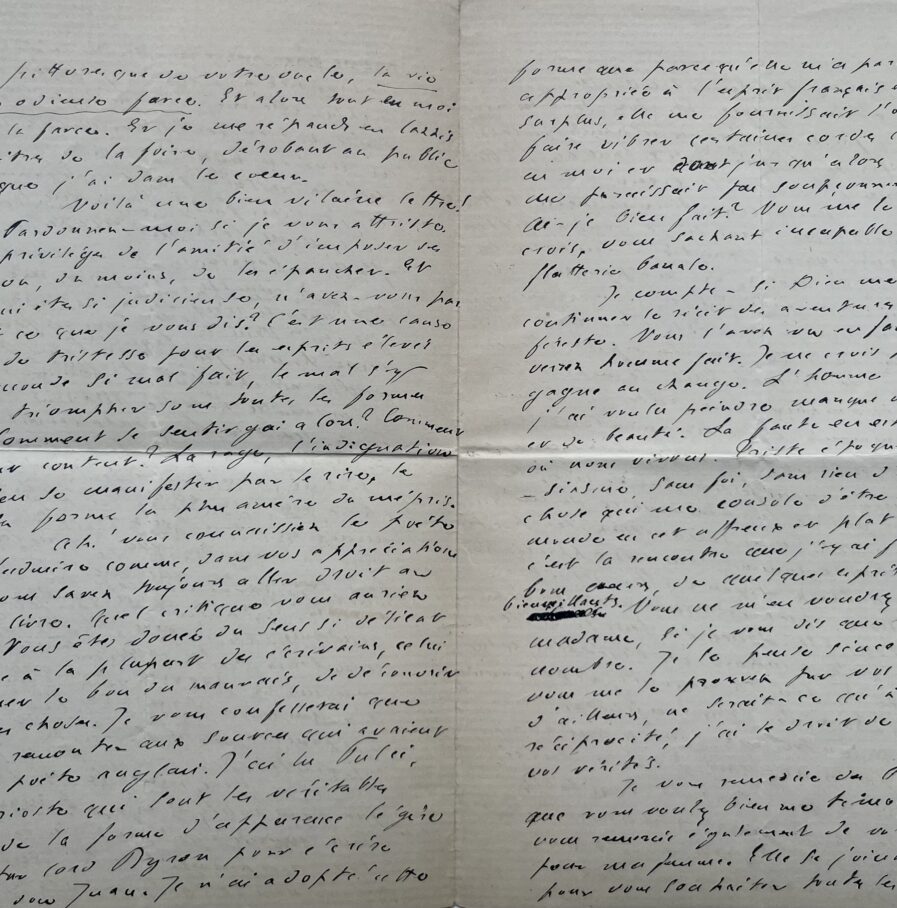 pittoresque de votre oncle, la vie
odieuse farce. Et alors tout en moi
la farce. Et je me répands en lazzis
de la foire, dérobant au public
que j'ai dans le coeur.
Voilà une bien vilaine lettre!
Pardonnez-moi si je vous attriste.
privilège de l'amitié d'imposer ses
ou, du moins, de les épancher. Et
qui êtes si judicieuse, n'avez-vous pas
ce que je vous dis? C'est une cause
de tristesse pour les esprits élevés
monde si mal fait, le mal s'y
triompher sous toutes les formes
Comment se sentir gai alors? Comment
content? La rage, l'indignation
se manifester par le rire, la
forme la plus amère du mépris.
Ah! vous connaissez les poètes
admire comme, dans vos appréciations
vous savez toujours aller droit au
livre. Quel critique vous auriez
Vous êtes douée du sens si délicat
à la plupart des écrivains, celui
le bon du mauvais, de découvrir
choses. Je vous confesserai que
remonter aux sources qui avaient
poète anglais. J'ai lu Pulci,
qui sont les véritables
de la forme d'apparence légère
par lord Byron pour écrire
Don Juan. Je n'ai adopté cette
forme que parce qu'elle m'a par
appropriée à l'esprit français
surplus, elle me fournissait l'o
faire vibrer certaines cordes
en moi et dont jusqu'alors
me paraissait pas soupçonner
Ai-je bien fait? Vous me le
crois, vous sachant incapable
flatterie banale.
Je compte – si Dieu me
continuer le récit des aventures
Vous l'avez vu enfant
verrez homme fait. Je ne crois
gagne au change. L'homme
j'ai voulu peindre manque
et de beauté. La faute en est
où nous vivons. Triste époque
sans foi, sans rien d
chose qui me console d'être
monde en cet affreux et plat
c'est la rencontre que j'y ai f
bons coeurs, de quelques esprits
bienveillants. Vous ne m'en voudrez
madame, si je vous dis que
nombre. Je le pense sincè
vous me le prouvez par vos
d'ailleurs, ne serait-ce qu'à
réciprocité, j'ai le droit de
vos vérités.
Je vous remercie des
que vous voulez bien me témo
vous remercie également de vo
pour ma femme. Elle se joint
pour vous souhaiter toutes les